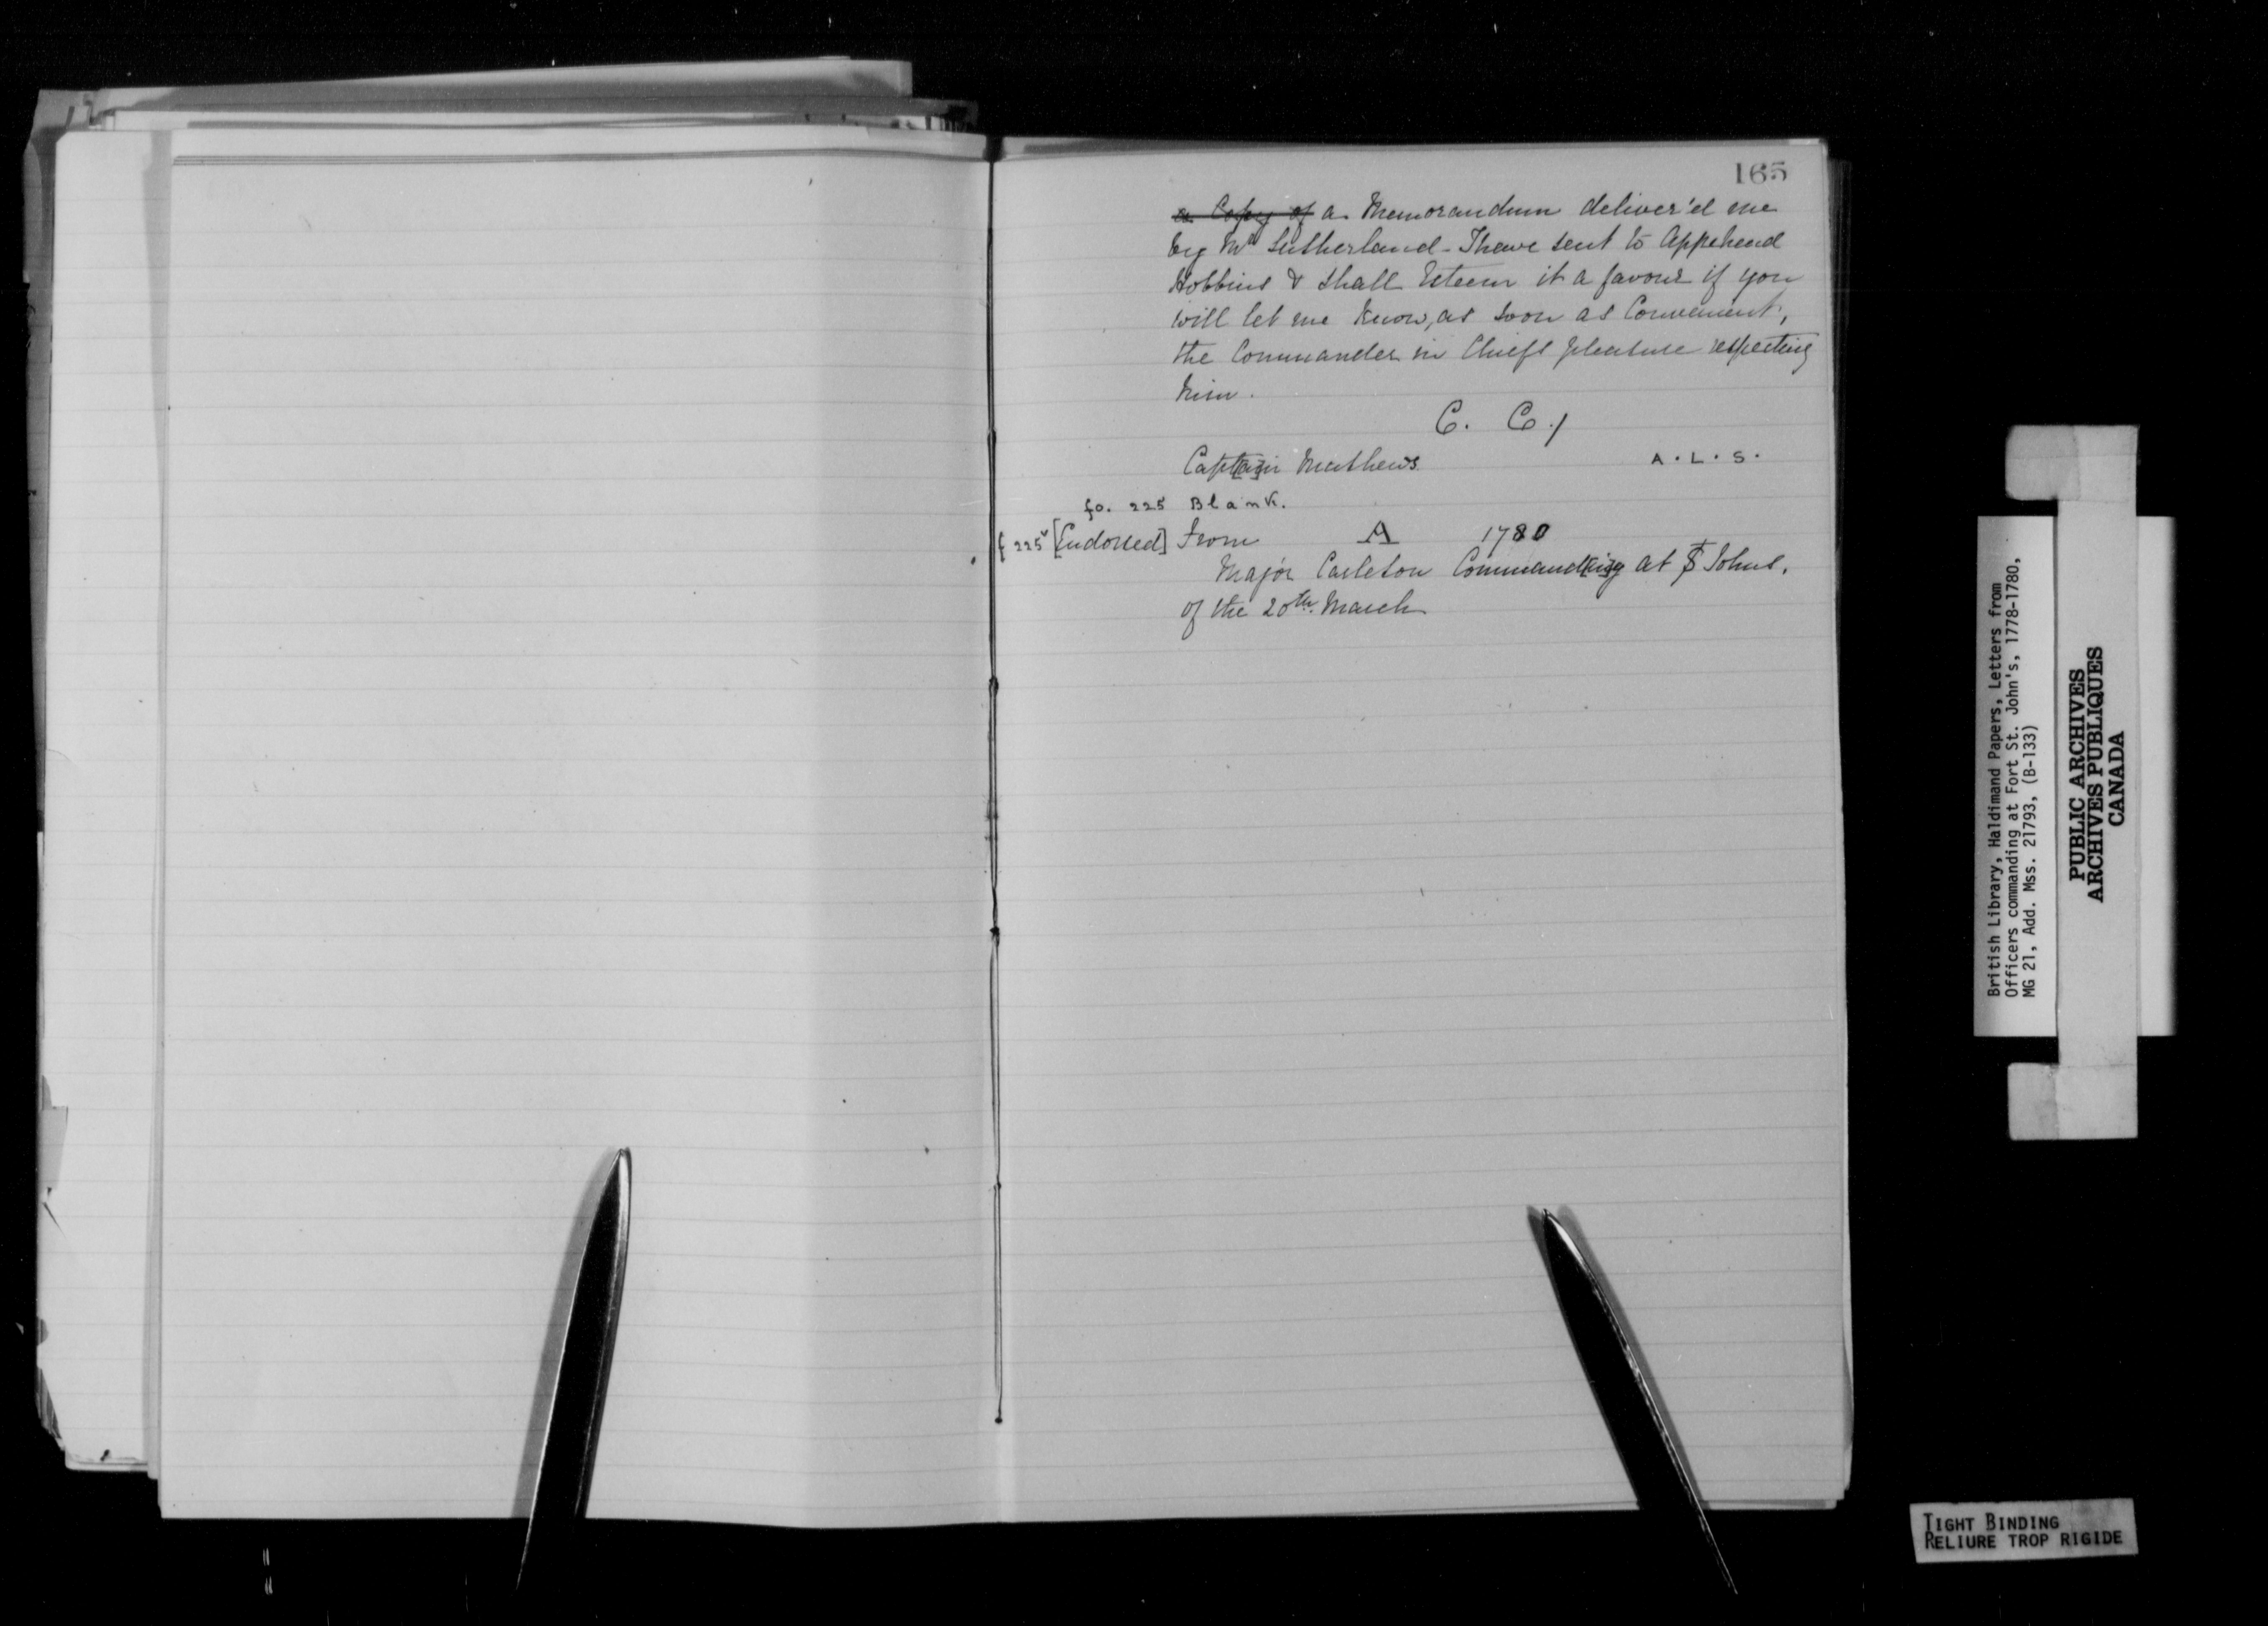 165
a Copy of a Memorandum deliver'd me
by Mr Sutherland - I have sent to Apprehend
Hobbins & shall Esteem it a favour if you
will let me know, as soon as Convenient,
the Commander in Chiefs pleasure respecting
him.
C. C./
Capt[ai]n Mathews
A.L.S.
fo. 225 Blank.
f 225v [Endorsed] From A 1780
Major Carleton Command[in]g at St Johns.
of the 20th March
British Library, Haldimand Papers, Letters from
Officers commanding at Fort St. John's, 1778-1780,
MG 21, Add. Mss. 21793, (B-133)
PUBLIC ARCHIVES
ARCHIVES PUBLIQUES
CANADA
TIGHT BINDING
RELIURE TROP RIGIDE